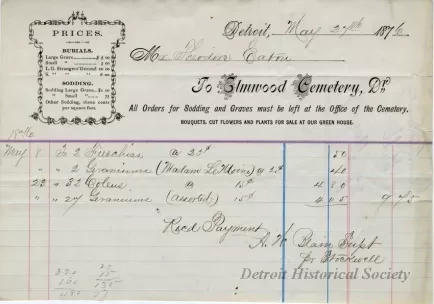 PRICES.
BURIALS.
Large Grave
Small "
L.G. Strangers' Ground
SODDING.
Sodding Large Grave
" Small "
Other Sodding, three cents
per square foot.
Detroit, May 27th 1876
Mr Theodore Eaton
To Elmwood Cemetery, Dr.
All Orders for Sodding and Graves must be left at the Office of the Cemetery.
BOUQUETS, CUT FLOWERS AND PLANTS FOR SALE AT OUR GREEN HOUSE.
1876
May 8 To 2 Fuschias @ 25¢ 50
" " 2 Geraniums (Madam LeMoine) @ 40
22 " 32 Coleus @ 15¢ 4 80
" " 27 Geraniums (assorted) 15¢ 4 05 9 75
Recd Payment
A. H. Blain Supt
for Stockwell
27
15
135
27
Detroit Historical Society